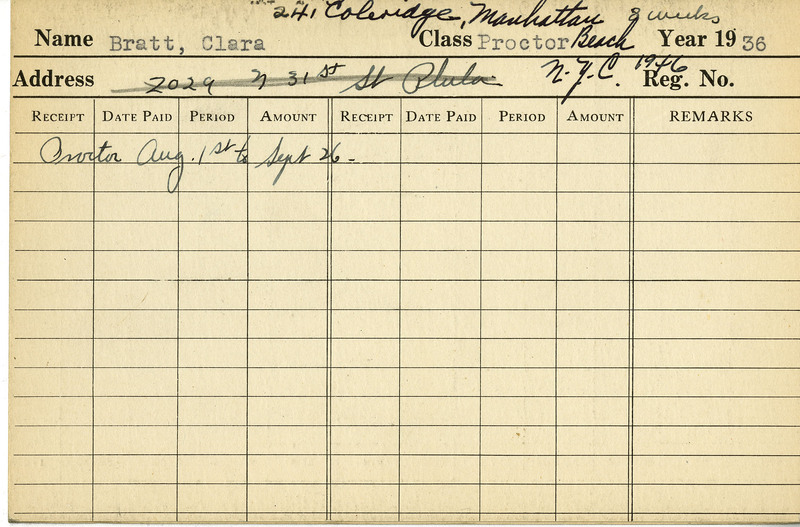 241 Coleridge, Manhattan 8 weeks
Name Bratt, Clara Class Proctor Beach Year 19 36
Address 2029 N 31st St Phila N.Y.C. 1946 Reg. No.
RECEIPT DATE PAID PERIOD AMOUNT RECEIPT DATE PAID PERIOD AMOUNT REMARKS
Proctor Aug. 1st to Sept 26 -